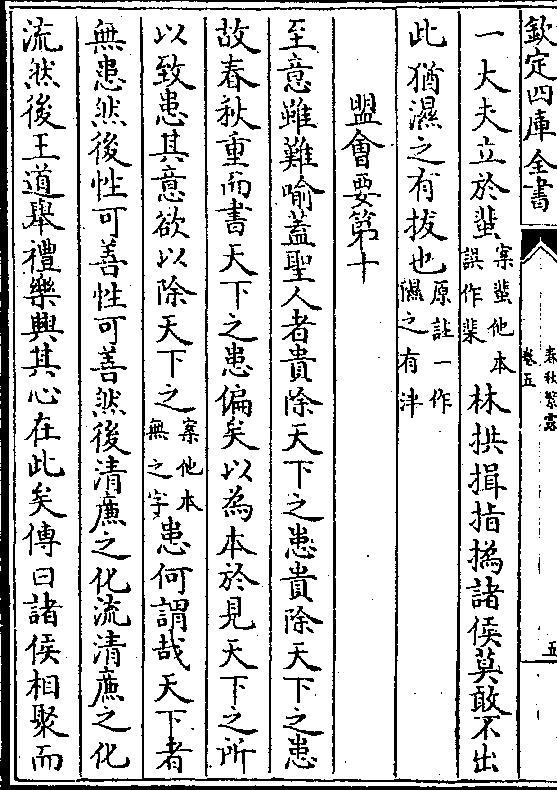 欽定四庫全書
春秋繁露
卷五
五
一大夫立於蜚案蜚他本誤作棐林拱揖指撝諸侯莫敢不出
此猶濕之有拔也原註一作隰之有泮
盟會要第十
至意雖難喻蓋聖人者貴除天下之患貴除天下之患
故春秋重而書天下之患偏矣以為本於見天下之所
以致患其意欲以除天下之案他本無之字患何謂哉天下者
無患然後性可善性可善然後清廉之化流清廉之化
流然後王道舉禮樂興其心在此矣傳曰諸侯相聚而